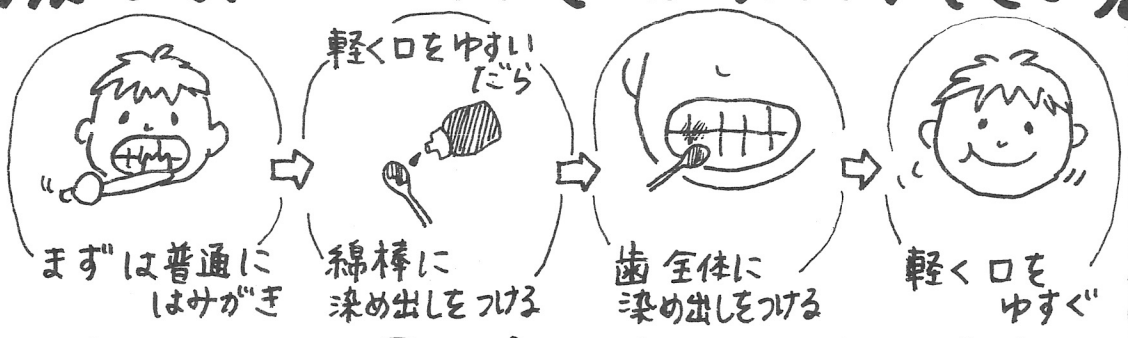 まずは普通に
はみがき
軽く口をゆすい
だら
綿棒に
染め出しをつける
歯全体に
染め出しをつける
軽く口を
ゆすぐ